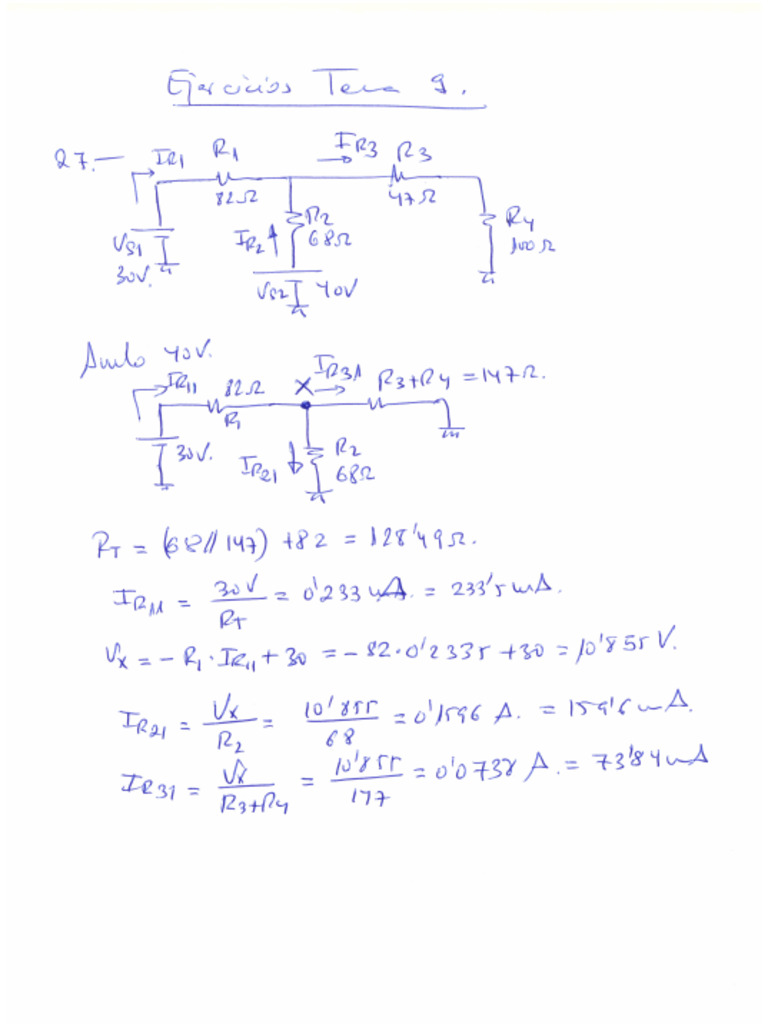 Ejercicios Tema 9.
27.-
IR1 R1 IR3 R3
82Ω 47Ω
VS1 30V. IR2 R2 68Ω R4 100Ω
VS2 40V
Anulo 40V.
IR11 82Ω X IR31 R3+R4 = 147Ω.
R1
30V. IR21 R2 68Ω
RT = (68//147) + 82 = 128'49Ω.
IR11 = 30V / RT = 0'233 mA. = 233'5 mA.
Vx = - R1 · IR11 + 30 = - 82 · 0'2335 + 30 = 10'855 V.
IR21 = Vx / R2 = 10'855 / 68 = 0'1596 A. = 159'6 mA.
IR31 = Vx / R3+R4 = 10'855 / 147 = 0'0738 A. = 73'84 mA